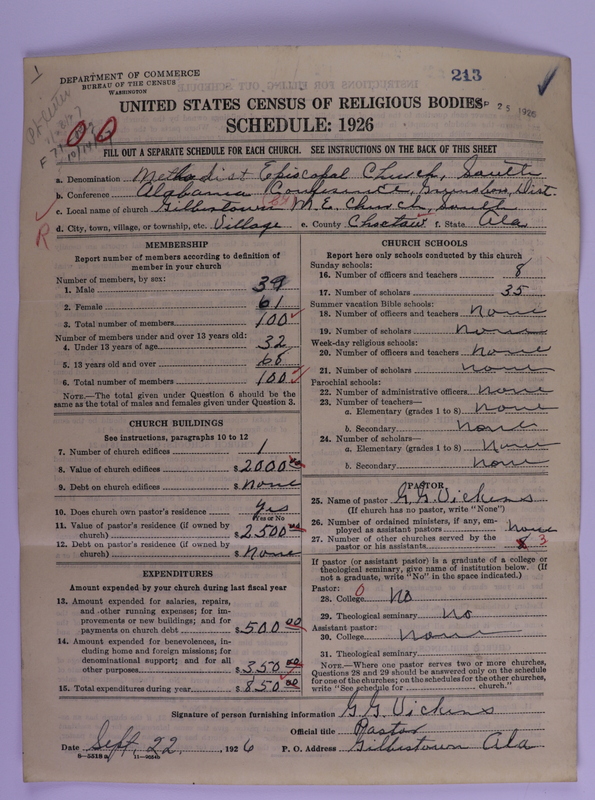 DEPARTMENT OF COMMERCE
BUREAU OF THE CENSUS
WASHINGTON
213
25 1926
UNITED STATES CENSUS OF RELIGIOUS BODIES
SCHEDULE: 1926
FILL OUT A SEPARATE SCHEDULE FOR EACH CHURCH. SEE INSTRUCTIONS ON THE BACK OF THIS SHEET
a. Denomination Methodist Episcopal Church, South
b. Conference Alabama Conference, Dist.
c. Local name of church Gilbertown M.E. Church, South
d. City, town, village, or township, etc. Village e. County Choctaw f. State Ala
MEMBERSHIP
Report number of members according to definition of member in your church
Number of members, by sex:
1. Male 39
2. Female 61
3. Total number of members 100
Number of members under and over 13 years old:
4. Under 13 years of age 32
5. 13 years old and over 68
6. Total number of members 100
NOTE.—The total given under Question 6 should be the same as the total of males and females given under Question 3.
CHURCH BUILDINGS
See instructions, paragraphs 10 to 12
7. Number of church edifices 1
8. Value of church edifices $2000.00
9. Debt on church edifices $None
10. Does church own pastor's residence Yes
Yes or No
11. Value of pastor's residence (if owned by church) $2500.00
12. Debt on pastor's residence (if owned by church) $None
EXPENDITURES
Amount expended by your church during last fiscal year
13. Amount expended for salaries, repairs, and other running expenses; for improvements or new buildings; and for payments on church debt $500.00
14. Amount expended for benevolences, including home and foreign missions; for denominational support; and for all other purposes $350.00
15. Total expenditures during year $850.00
CHURCH SCHOOLS
Report here only schools conducted by this church
Sunday schools:
16. Number of officers and teachers 8
17. Number of scholars 35
Summer vacation Bible schools:
18. Number of officers and teachers None
19. Number of scholars None
Week-day religious schools:
20. Number of officers and teachers None
21. Number of scholars None
Parochial schools:
22. Number of administrative officers None
23. Number of teachers—
a. Elementary (grades 1 to 8) None
b. Secondary None
24. Number of scholars—
a. Elementary (grades 1 to 8) None
b. Secondary None
PASTOR
25. Name of pastor G.G. Vickens
(If church has no pastor, write "None")
26. Number of ordained ministers, if any, employed as assistant pastors None
27. Number of other churches served by the pastor or his assistants 3
If pastor (or assistant pastor) is a graduate of a college or theological seminary, give name of institution below. (If not a graduate, write "No" in the space indicated.)
Pastor:
28. College No
29. Theological seminary No
Assistant pastor:
30. College None
31. Theological seminary
NOTE.—Where one pastor serves two or more churches, Questions 28 and 29 should be answered only on the schedule for one of the churches; on the schedules for the other churches, write "See schedule for church."
Signature of person furnishing information G.G. Vickens
Official title Pastor
Date Sept. 22, 1926 P. O. Address Gilbertown Ala
8—5518a